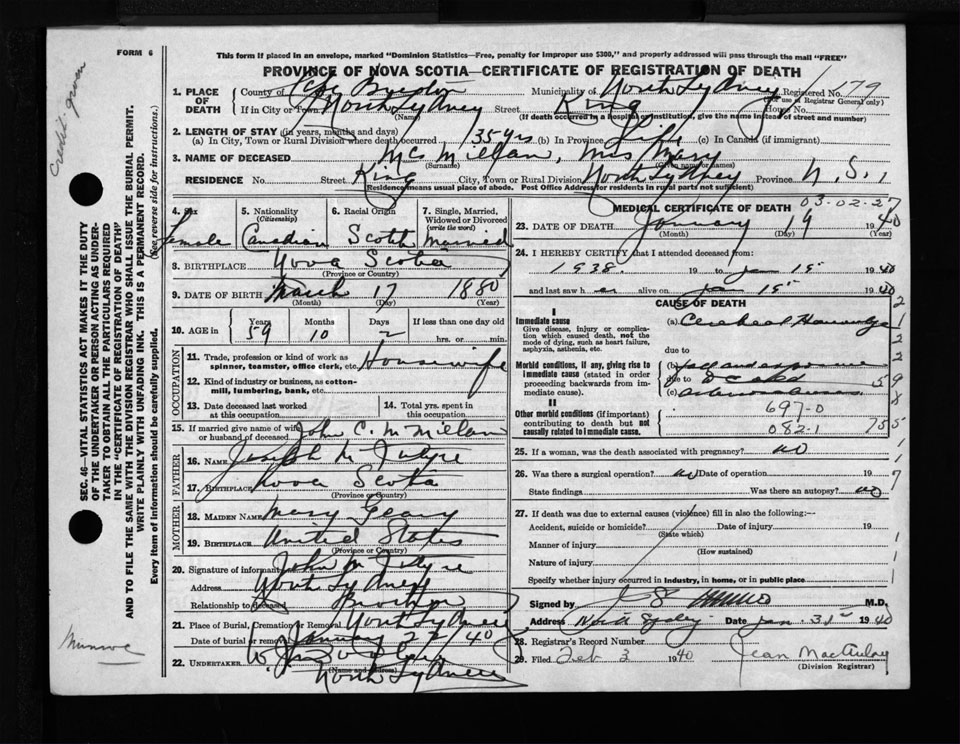 Credit given
Munroe
SEC. 46—VITAL STATISTICS ACT MAKES IT THE DUTY
OF THE UNDERTAKER OR PERSON ACTING AS UNDER-
TAKER TO OBTAIN ALL THE PARTICULARS REQUIRED
IN THE "CERTIFICATE OF REGISTRATION OF DEATH"
AND TO FILE THE SAME WITH THE DIVISION REGISTRAR WHO SHALL ISSUE THE BURIAL PERMIT.
WRITE PLAINLY WITH UNFADING INK. THIS IS A PERMANENT RECORD.
Every item of information should be carefully supplied. (See reverse side for instructions.)
FORM 6
This form if placed in an envelope, marked "Dominion Statistics—Free, penalty for improper use $300," and properly addressed will pass through the mail "FREE"
PROVINCE OF NOVA SCOTIA—CERTIFICATE OF REGISTRATION OF DEATH
1. PLACE OF DEATH County of Cape Breton Municipality of North Sydney Registered No. 179
(For use of Registrar General only)
If in City or Town North Sydney Street King House No.
(Name) (If death occurred in a hospital or institution, give the name instead of street and number)
2. LENGTH OF STAY (in years, months and days)
(a) In City, Town or Rural Division where death occurred 35 yrs (b) In Province Life (c) In Canada (if immigrant)
3. NAME OF DECEASED McMillan, Mrs Mary
(Surname) (Given name or names)
RESIDENCE No. Street King City, Town or Rural Division North Sydney Province N.S.
Residence means usual place of abode. Post Office Address for residents in rural parts not sufficient)
4. Sex 5. Nationality (Citizenship) 6. Racial Origin 7. Single, Married, Widowed or Divorced (write the word)
Female Canadian Scotch Married
8. BIRTHPLACE Nova Scotia
(Province or Country)
9. DATE OF BIRTH March 17 1880
(Month) (Day) (Year)
10. AGE in Years Months Days If less than one day old
59 10 2 hrs. or min.
OCCUPATION
11. Trade, profession or kind of work as spinner, teamster, office clerk, etc. Housewife
12. Kind of industry or business, as cotton-mill, lumbering, bank, etc.
13. Date deceased last worked at this occupation 14. Total yrs. spent in this occupation
15. If married give name of wife or husband of deceased John C. McMillan
FATHER
16. NAME Joseph McIntyre
17. BIRTHPLACE Nova Scotia
(Province or Country)
MOTHER
18. MAIDEN NAME Mary Geary
19. BIRTHPLACE United States
(Province or Country)
20. Signature of informant John McIntyre
Address North Sydney
Relationship to deceased Brother
21. Place of Burial, Cremation or Removal North Sydney
Date of burial or removal January 22/40
22. UNDERTAKER
(Name and address)
North Sydney
03-02-27
MEDICAL CERTIFICATE OF DEATH
23. DATE OF DEATH January 19 1940
(Month) (Day) (Year)
24. I HEREBY CERTIFY that I attended deceased from:
1938 19 to Jan 15 1940
and last saw h er alive on Jan 15 1940
CAUSE OF DEATH
I
Immediate cause (a) Cerebral Hemorrhage
Give disease, injury or complication which caused death, not the mode of dying, such as heart failure, asphyxia, asthenia, etc.
due to
Morbid conditions, if any, giving rise to immediate cause (stated in order proceeding backwards from immediate cause). (b) Fall and exposure
due to to cold
(c) Arteriosclerosis
II
Other morbid conditions (if important) contributing to death but not causally related to immediate cause.
697-0
082-1
25. If a woman, was the death associated with pregnancy? no
26. Was there a surgical operation? no Date of operation 19
State findings Was there an autopsy? no
27. If death was due to external causes (violence) fill in also the following:—
Accident, suicide or homicide? Date of injury 19
(State which)
Manner of injury
(How sustained)
Nature of injury
Specify whether injury occurred in industry, in home, or in public place
Signed by M.D.
Address North Sydney Date Jan. 31st 1940
28. Registrar's Record Number
29. Filed Feb 3 1940 Jean MacAulay
(Division Registrar)